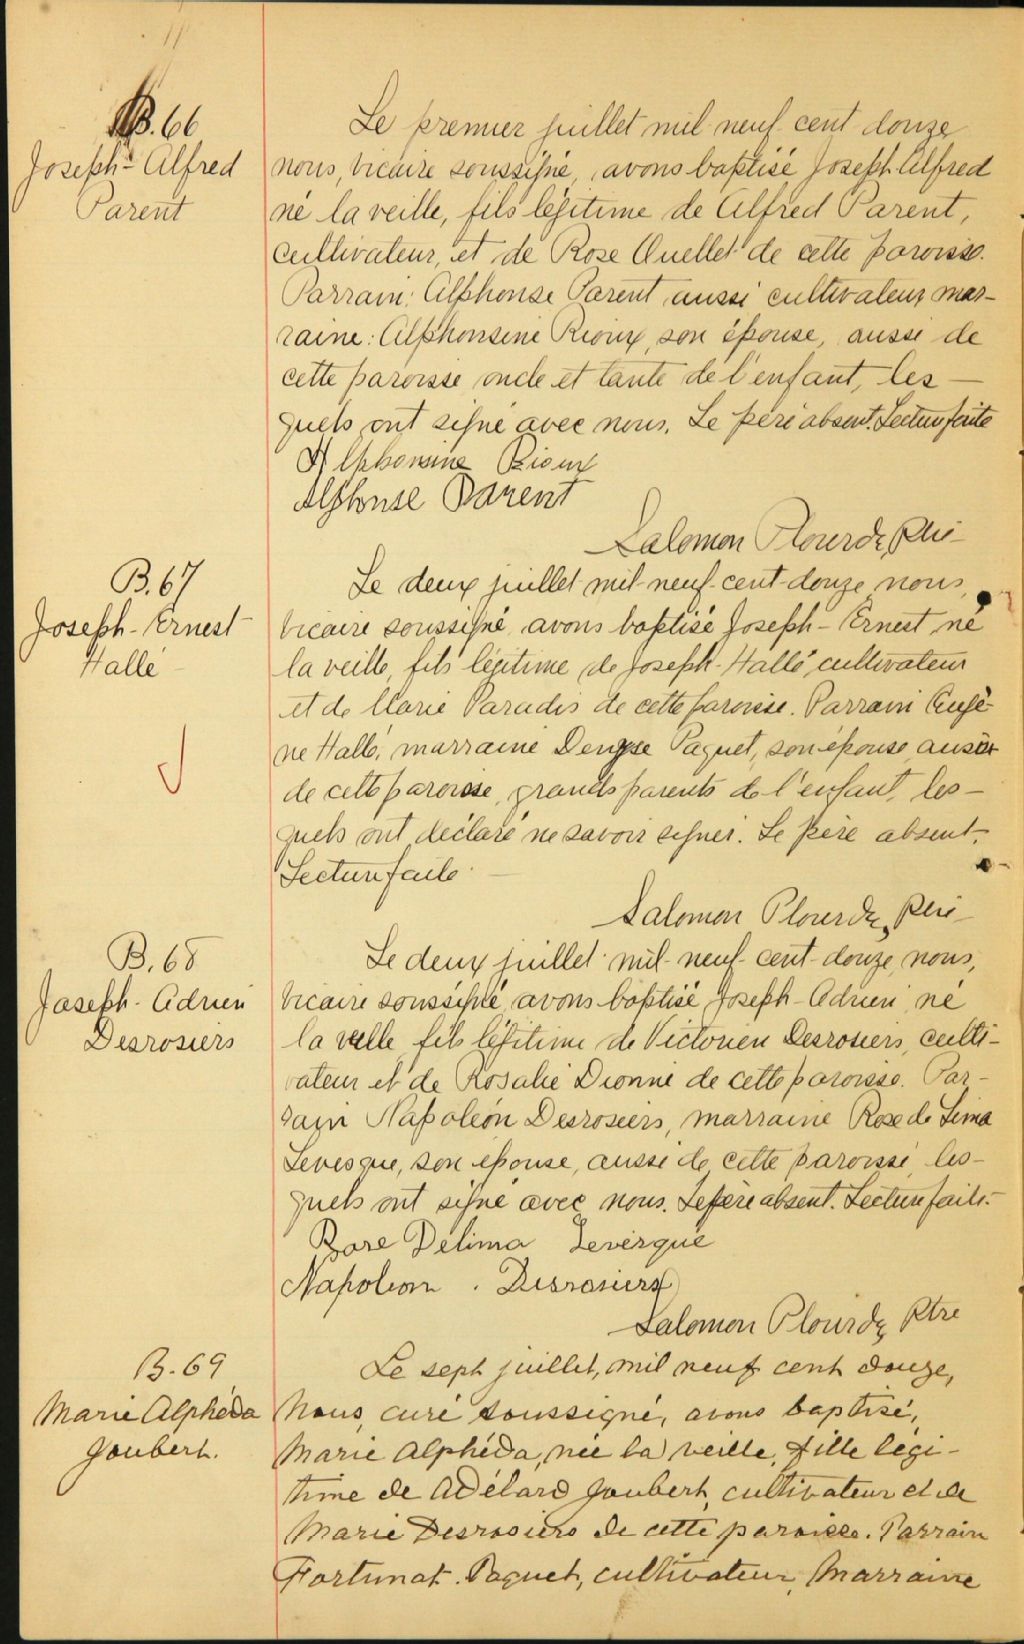 B.66
Joseph-Alfred
Parent
Le premier juillet mil-neuf-cent-douze
nous, vicaire soussigné, avons baptisé Joseph-Alfred
né la veille, fils légitime de Alfred Parent,
cultivateur, et de Rose Ouellet de cette paroisse.
Parrain: Alphonse Parent aussi cultivateur, mar-
raine: Alphonsine Rioux, son épouse, aussi de
cette paroisse oncle et tante de l'enfant, les-
quels ont signé avec nous. Le père absent. Lecture faite
Alphonsine Rioux
Alphonse Parent
Salomon Plourde, Ptre
B.67
Joseph-Ernest
Hallé
Le deux juillet mil-neuf-cent-douze, nous,
vicaire soussigné, avons baptisé Joseph-Ernest né
la veille, fils légitime de Joseph-Hallé cultivateur
et de Marie Paradis de cette paroisse. Parrain Eugè-
ne Hallé, marraine Denyse Paquet, son épouse, aussi
de cette paroisse, grands parents de l'enfant, les-
quels ont déclaré ne savoir signer. Le père absent.
Lecture faite
Salomon Plourde, Ptre
B.68
Joseph-Adrien
Desrosiers
Le deux juillet mil-neuf-cent-douze, nous,
vicaire soussigné, avons baptisé Joseph-Adrien, né
la veille, fils légitime de Victorien Desrosiers, culti-
vateur et de Rosalie Dionne de cette paroisse. Par-
rain Napoléon Desrosiers, marraine Rose de Lima
Levesque, son épouse, aussi de cette paroisse, les-
quels ont signé avec nous. Le père absent. Lecture faite.
Rose Delima Levesque
Napoleon Desrosiers
Salomon Plourde, Ptre
B.69
Marie Alphéda
Joubert.
Le sept juillet, mil neuf cent douze,
Nous, curé soussigné, avons baptisé,
Marie Alphéda, née la veille, fille légi-
time de Adélard Joubert, cultivateur et de
Marie Desrosiers de cette paroisse. Parrain
Fortunat Paquet, cultivateur, Marraine